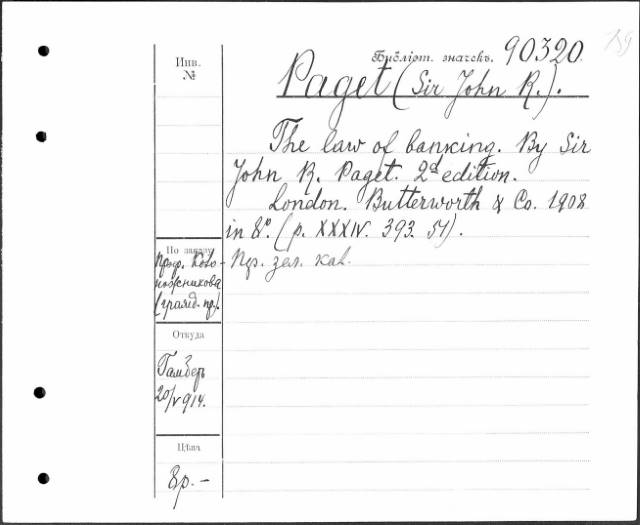 Инв.
№
Библіот. значекъ. 90320
Paget (Sir John R.).
The law of banking. By Sir
John R. Paget. 2d edition.
London. Butterworth & Co. 1908
in 8º. (p. XXXIV. 393. 51).
По заказу
Проф.
(гражд. пр.).
Откуда
20/V 914.
Цѣна
8р. –